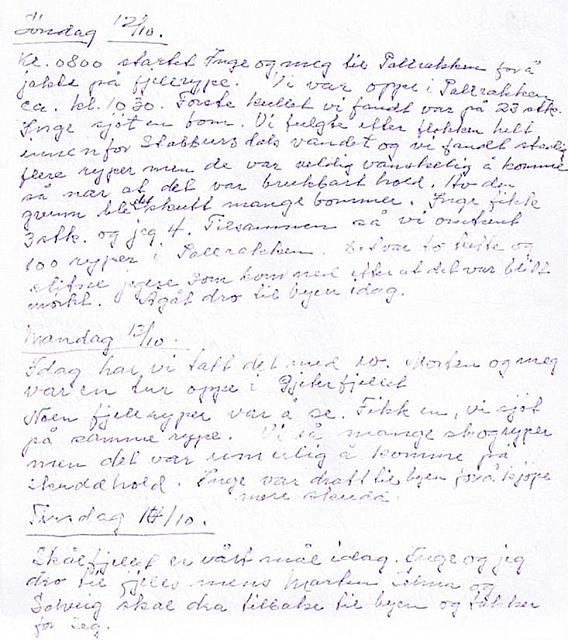 Søndag 12/10.
Kl. 0800 startet Inge og meg til Pallrakken for å
jakte på fjellrype. Vi var oppe i Pallrakken
ca. kl. 10.30. Første kullet vi fandt var på 23 stk.
Inge sjøt en bom. Vi fulgte etter flokken helt
innenfor Stabbursdals vandet og vi fandt stadig
flere ryper men de var veldig vanskelig å komme
så nær at det var brukbart hold. Av den
grunn ble det skutt mange bommer. Inge fikk
3 stk. og jeg 4. Tilsammen så vi omtrent
100 ryper i Pallrakken. Det var to trøtte og
slitne jegere som kom ned etter at det var blitt
mørkt. Ågåt dro til byen idag.
Mandag 13/10.
Idag har vi tatt det med ro. Morten og meg
var en tur oppe i Pjeterfjellet
Noen fjellryper var å se. Fikk en, vi sjøt
på samme rype. Vi så mange skogryper
men det var umulig å komme på
skuddhold. Inge var dratt til byen for å kjøpe
mere skudd.
Tirsdag 14/10.
Skålfjellet er vårt mål idag. Inge og jeg
dro til fjells mens Morten og
Solveig skal dra tilbake til byen og
for seg.